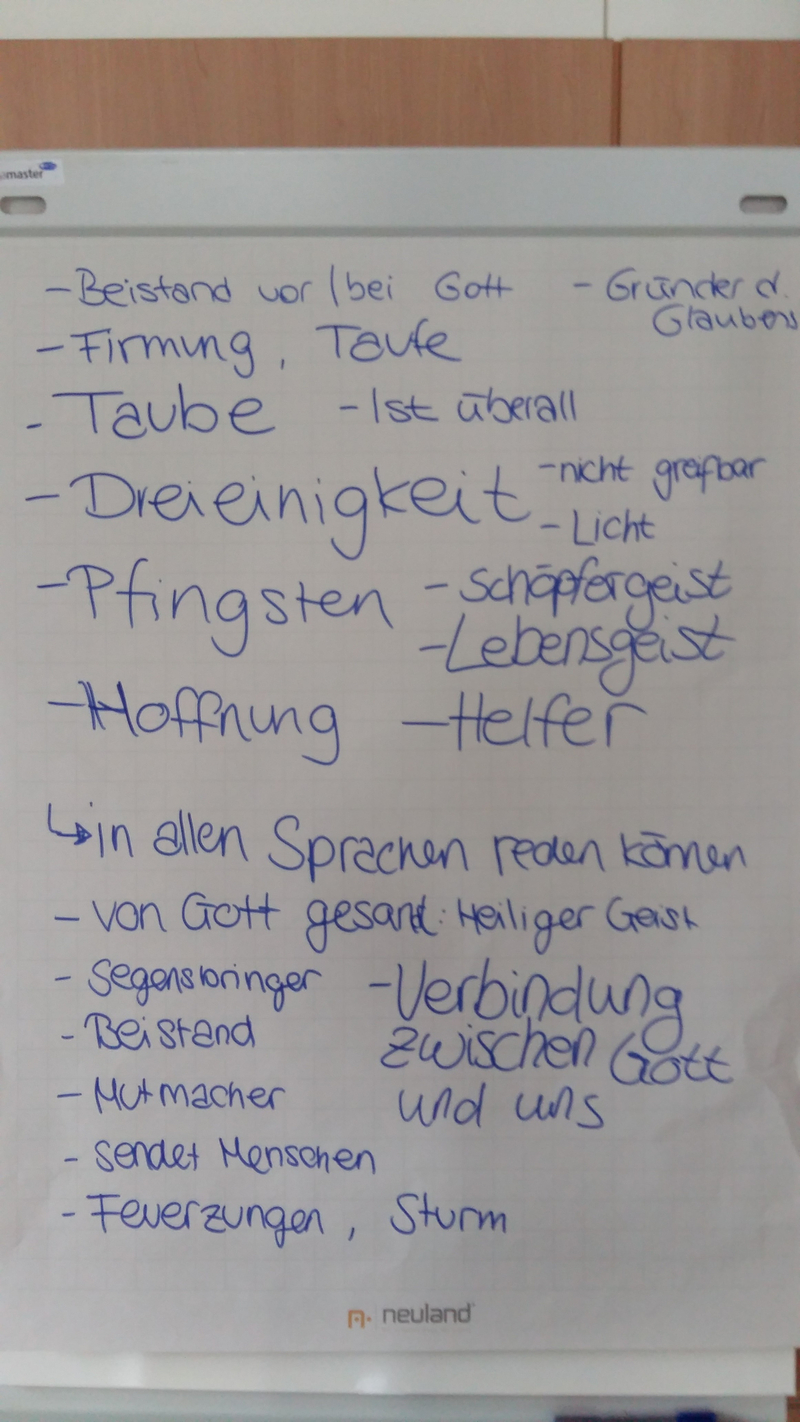 master
- Beistand vor / bei Gott - Gründer d. Glaubens
- Firmung, Taufe
- Taube - Ist überall
- Dreieinigkeit - nicht greifbar
- Licht
- Pfingsten - Schöpfergeist
- Lebensgeist
- Hoffnung - Helfer
↳ in allen Sprachen reden können
- von Gott gesant: Heiliger Geist
- Segensbringer
- Beistand
- Mutmacher
- sendet Menschen
- Feuerzungen, Sturm
- Verbindung
zwischen Gott
und uns
neuland